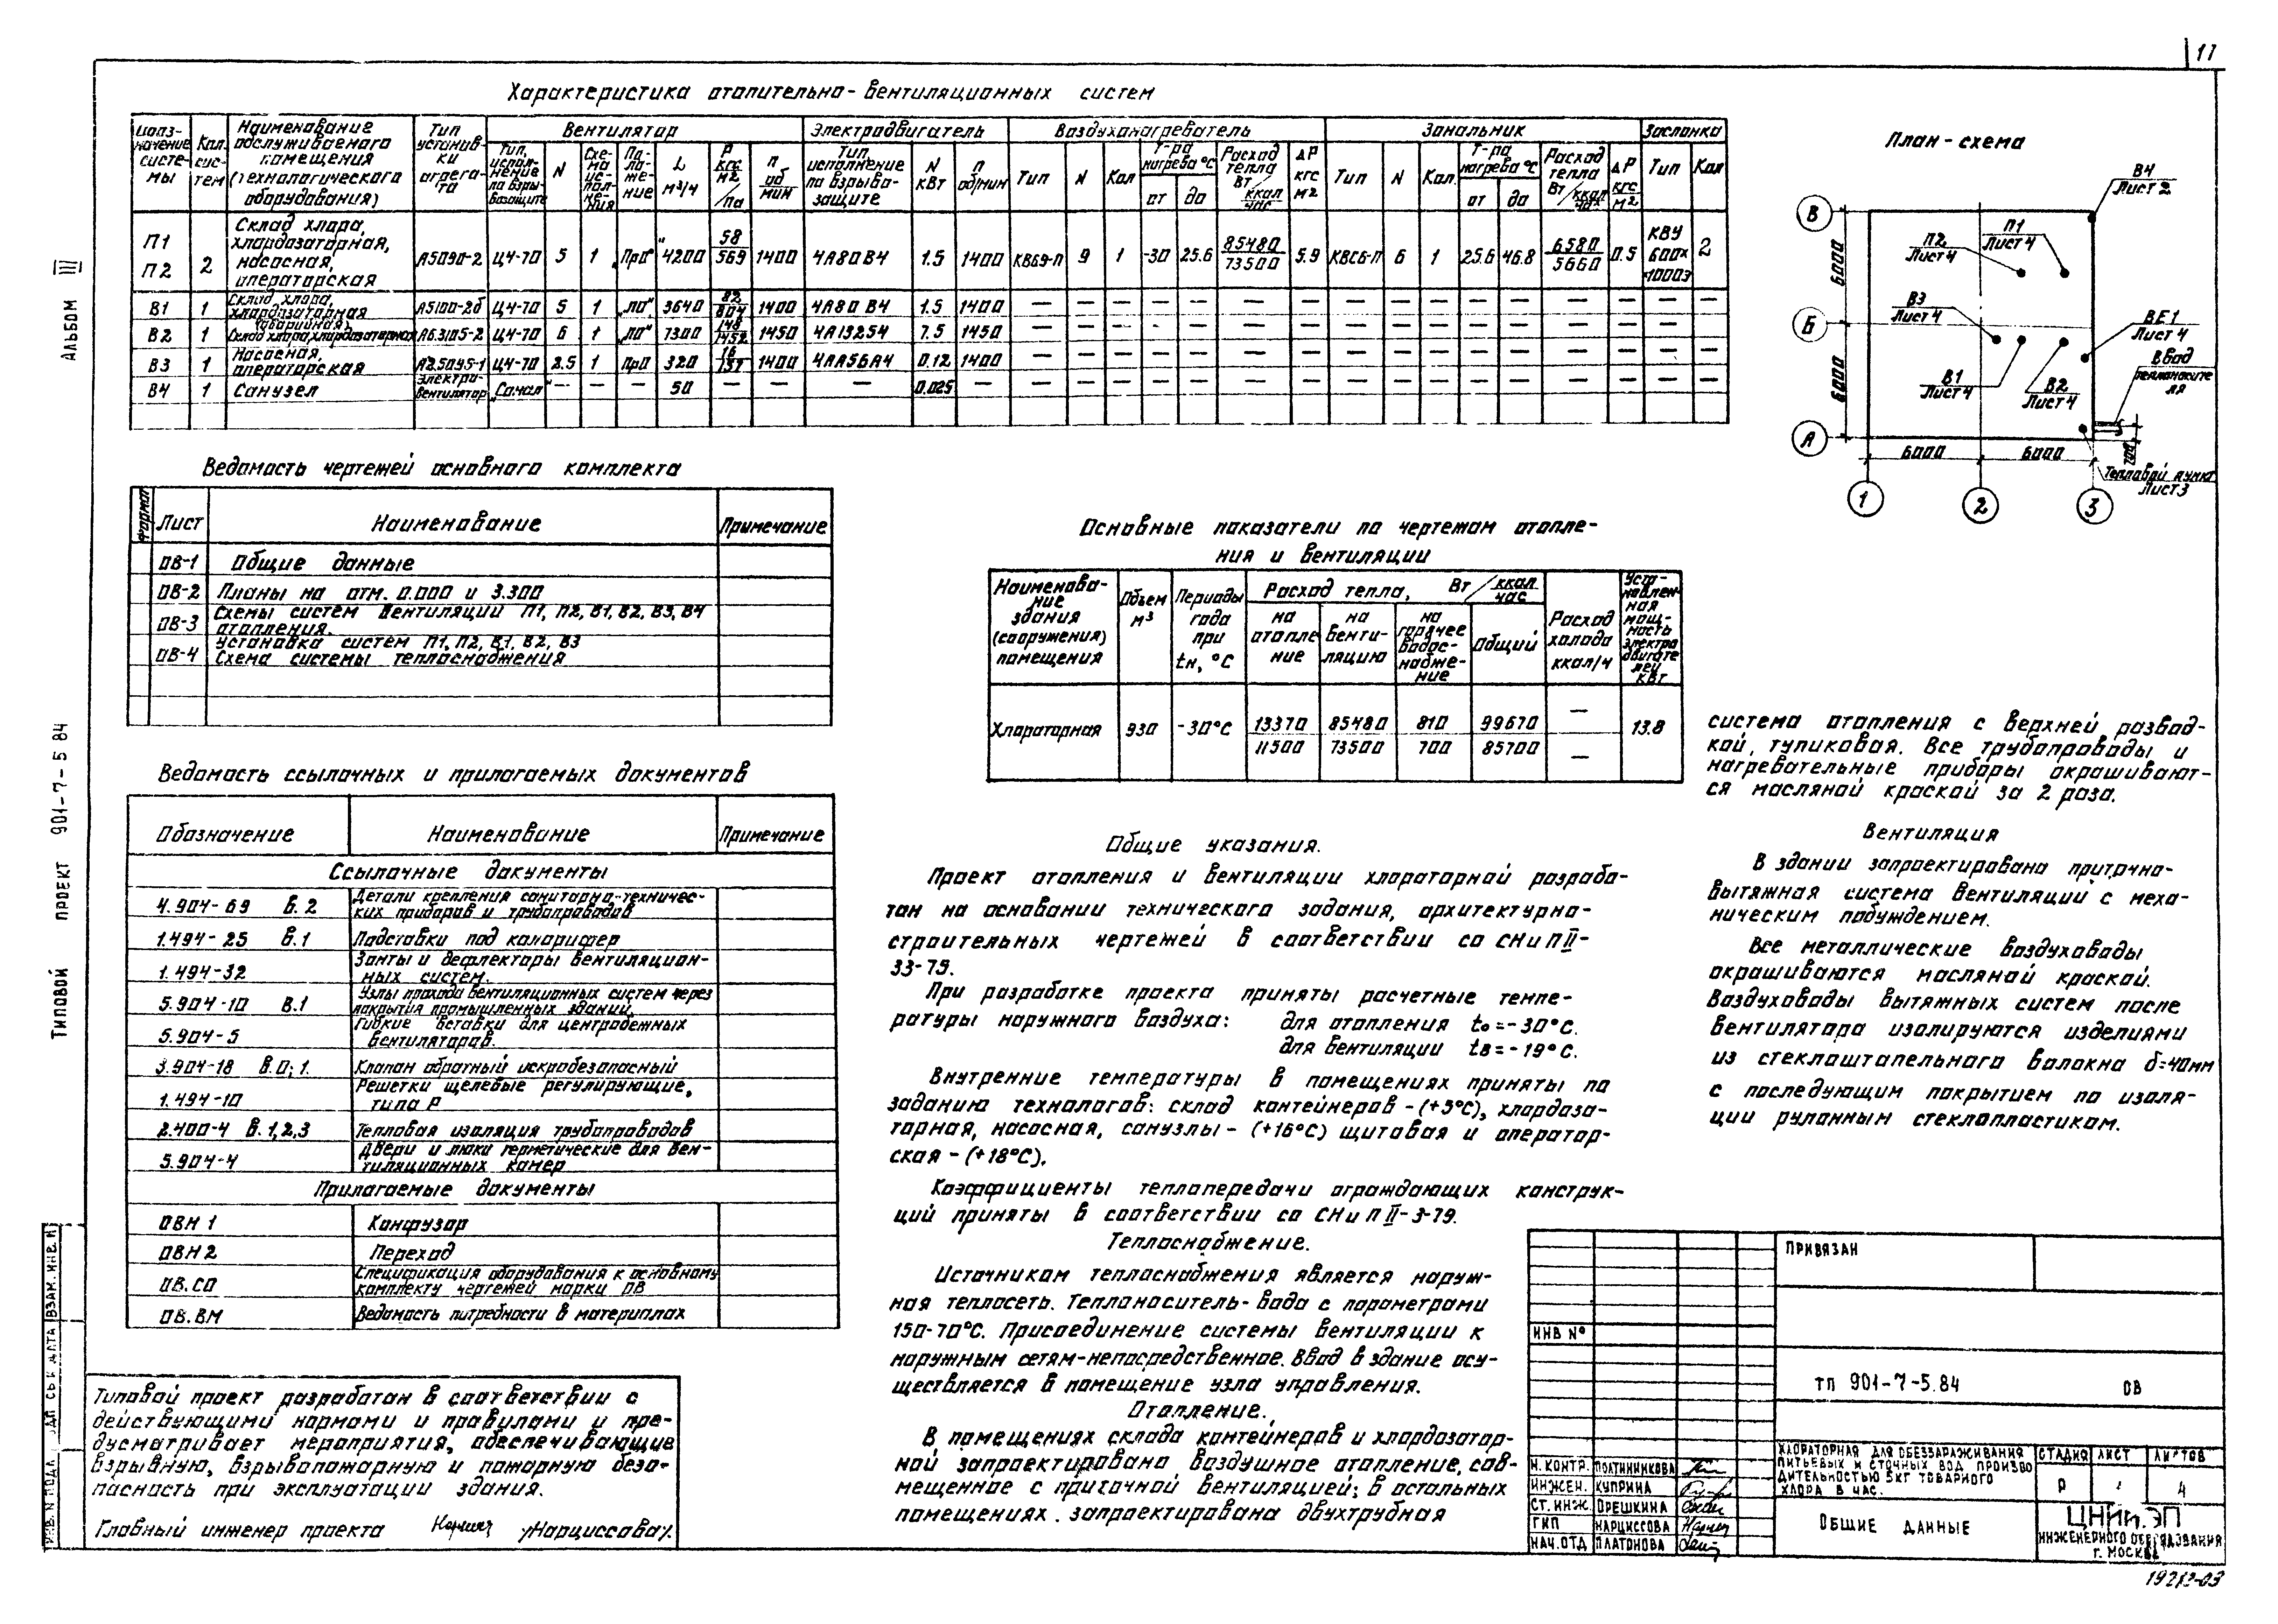 17
Характеристика отопительно-вентиляционных систем
Обозначение системы | Кол. систем | Наименование обслуживаемого помещения (технологического оборудования) | Тип установки агрегата | Вентилятор | Электродвигатель | Воздухонагреватель | Зональник | Заслонка
Тип, исполнение по взрывозащите | N | Схема исполнения | Положение | L м³/ч | Р кгс/м2 /Па | n об/мин | Тип исполнение по взрывозащите | N кВт | n об/мин | Тип | N | Кол | Т-ра нагрева °С от до | Расход тепла Вт/ккал час | ΔР кгс м2 | Тип | N | Кол. | Т-ра нагрева °С от до | Расход тепла Вт/ккал час | ΔР кгс м2 | Тип | Кол
П1 П2 | 2 | Склад хлора, хлордозаторная, насосная, операторская | А5090-2 | Ц4-70 | 5 | 1 | „Пр0° | 4200 | 58/569 | 1400 | 4А80В4 | 1.5 | 1400 | КВБ9-П | 9 | 1 | -30 | 25.6 | 85480/73500 | 5.9 | КВСБ-П | 6 | 1 | 25.6 | 46.8 | 6580/5660 | 0.5 | КВУ 600х1000Э | 2
В1 | 1 | Склад хлора, хлордозаторная | А5100-2б | Ц4-70 | 5 | 1 | „Л0° | 3640 | 82/804 | 1400 | 4А80 В4 | 1.5 | 1400 | — | — | — | — | — | — | — | — | — | — | — | — | — | — | — | —
В2 | 1 | (аварийная) Склад хлора, хлордозаторная | А6.3105-2 | Ц4-70 | 6 | 1 | „Л0° | 7300 | 148/1452 | 1450 | 4А132S4 | 7.5 | 1450 | — | — | — | — | — | — | — | — | — | — | — | — | — | — | — | —
В3 | 1 | Насосная, операторская | А2.5095-1 | Ц4-70 | 2.5 | 1 | Пр0 | 320 | 16/157 | 1400 | 4АА56А4 | 0.12 | 1400 | — | — | — | — | — | — | — | — | — | — | — | — | — | — | — | —
В4 | 1 | Санузел | Электровентилятор | „Самал" | — | — | — | 50 | — | — | — | 0.025 | — | — | — | — | — | — | — | — | — | — | — | — | — | — | — | — | —
План-схема
В4
Лист 2
В
П2
Лист 4
П1
Лист 4
6000
Б
В3
Лист 4
ВЕ1
Лист 4
Ввод
теплоносителя
6000
В1
Лист 4
В2
Лист 4
А
6000 6000
700
Тепловой пункт
Лист 3
1 2 3
АЛЬБОМ III
ТИПОВОЙ ПРОЕКТ 901-7-5 84
Ведомость чертежей основного комплекта
Формат | Лист | Наименование | Примечание
ОВ-1 | Общие данные
ОВ-2 | Планы на отм. 0.000 и 3.300
ОВ-3 | Схемы систем вентиляции П1, П2, В1, В2, В3, В4
отопления.
ОВ-4 | Установка систем П1, П2, В1, В2, В3
Схема системы теплоснабжения
Ведомость ссылочных и прилагаемых документов
Обозначение | Наименование | Примечание
Ссылочные документы
4.904-69 в.2 | Детали крепления санитарно-техничес-
ких приборов и трубопроводов
1.494-25 в.1 | Подставки под калорифер
1.494-32 | Зонты и дефлекторы вентиляцион-
ных систем.
5.904-10 в.1 | Узлы прохода вентиляционных систем через
покрытия промышленных зданий
5.904-5 | Гибкие вставки для центробежных
вентиляторов.
3.904-18 в.0;1. | Клапан обратный искробезопасный
1.494-10 | Решетки щелевые регулирующие,
типа Р
2.400-4 в.1,2,3 | Тепловая изоляция трубопроводов
5.904-4 | Двери и люки герметические для вен-
тиляционных камер
Прилагаемые документы
ОВН 1 | Конфузор
ОВН 2 | Переход
ОВ.СО | Спецификация оборудования к основному
комплекту чертежей марки ОВ
ОВ.ВМ | Ведомость потребности в материалах
Типовой проект разработан в соответствии с
действующими нормами и правилами и пре-
дусматривает мероприятия, обеспечивающие
взрывную, взрывопожарную и пожарную безо-
пасность при эксплуатации здания.
Главный инженер проекта /Нарциссова/.
Основные показатели по чертежам отопле-
ния и вентиляции
Наименование здания (сооружения) помещения | Объем м³ | Периоды года при tн, °С | Расход тепла, Вт/ккал час | Расход холода ккал/ч | Установленная мощность электродвигателей кВт
на отопление | на вентиляцию | на горячее водоснабжение | Общий
Хлораторная | 930 | -30°С | 13370/11500 | 85480/73500 | 810/700 | 99670/85700 | —/— | 13.8
Общие указания.
Проект отопления и вентиляции хлораторной разрабо-
тан на основании технического задания, архитектурно-
строительных чертежей в соответствии со СНиП II-
33-75.
При разработке проекта приняты расчетные темпе-
ратуры наружного воздуха: для отопления tо=-30°С.
для вентиляции tв=-19°С.
Внутренние температуры в помещениях приняты по
заданию технологов: склад контейнеров-(+5°С), хлордоза-
торная, насосная, санузлы-(+16°С) щитовая и оператор-
ская-(+18°С).
Коэффициенты теплопередачи ограждающих конструк-
ций приняты в соответствии со СНиП II-3-79.
Теплоснабжение.
Источником теплоснабжения является наруж-
ная теплосеть. Теплоноситель-вода с параметрами
150-70°С. Присоединение системы вентиляции к
наружным сетям-непосредственное. Ввод в здание осу-
ществляется в помещение узла управления.
Отопление.
В помещениях склада контейнеров и хлордозатор-
ной запроектировано воздушное отопление, сов-
мещенное с приточной вентиляцией; в остальных
помещениях запроектирована двухтрубная
система отопления с верхней развод-
кой, тупиковая. Все трубопроводы и
нагревательные приборы окрашивают-
ся масляной краской за 2 раза.
Вентиляция
В здании запроектирована приточно-
вытяжная система вентиляции с меха-
ническим побуждением.
Все металлические воздуховоды
окрашиваются масляной краской.
Воздуховоды вытяжных систем после
вентилятора изолируются изделиями
из стеклоштапельного волокна δ=40мм
с последующим покрытием по изоля-
ции рулонным стеклопластиком.
ПРИВЯЗАН
ИНВ №
ТП 901-7-5.84 ОВ
Н. КОНТР. ПОЛТИННИКОВА
ИНЖЕН. КУПРИНА
СТ. ИНЖ. ОРЕШКИНА
ГИП НАРЦИССОВА
НАЧ.ОТД ПЛАТОНОВА
ХЛОРАТОРНАЯ ДЛЯ ОБЕЗЗАРАЖИВАНИЯ
ПИТЬЕВЫХ И СТОЧНЫХ ВОД ПРОИЗВО
ДИТЕЛЬНОСТЬЮ 5КГ ТОВАРНОГО
ХЛОРА В ЧАС.
СТАДИЯ ЛИСТ ЛИСТОВ
Р 4
ОБЩИЕ ДАННЫЕ
ЦНИИЭП
ИНЖЕНЕРНОГО ОБОРУДОВАНИЯ
Г. МОСКВА
ВЗАМ. ИНВ. №
ИНВ. № ПОДЛ
19213-03